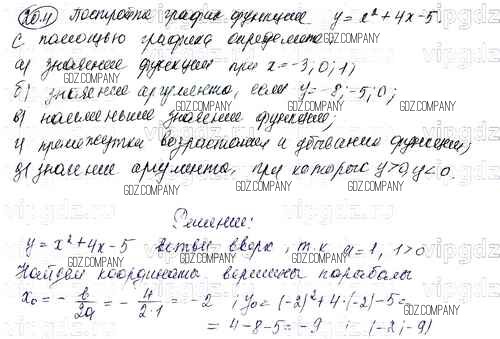 20.4 Постройте график функции y = x² + 4x - 5.
С помощью графика определите:
а) значение функции при x = -3; 0; 1;
б) значение аргумента, если y = -8; -5; 0;
в) наименьшее значение функции;
г) промежутки возрастания и убывания функции;
д) значение аргумента, при которых y > 0, y < 0.
Решение:
y = x² + 4x - 5 ветви вверх, т.к. a = 1, 1 > 0
Найдем координаты вершины параболы
x₀ = - b/2a = - 4/2·1 = -2 ; y₀ = (-2)² + 4·(-2) - 5 =
= 4 - 8 - 5 = -9 ; (-2; -9)
GDZ.COMPANY
vipgdz